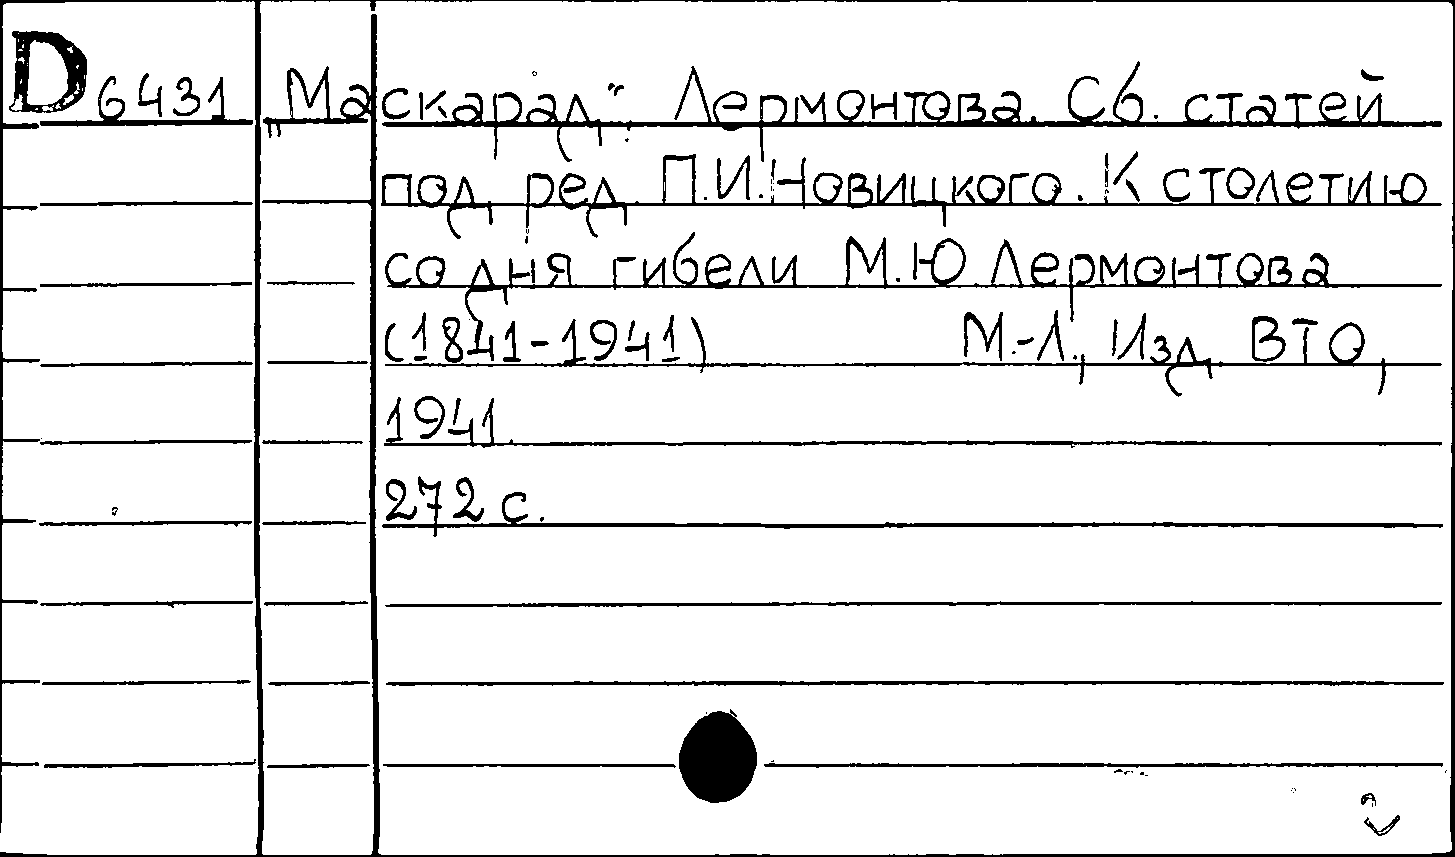 D 6431 „Маскарад“ Лермонтова. Сб. статей
под ред. П.И.Новицкого. К столетию
со дня гибели М.Ю.Лермонтова
(1841-1941) М.-Л., Изд. ВТО,
1941.
272 с.